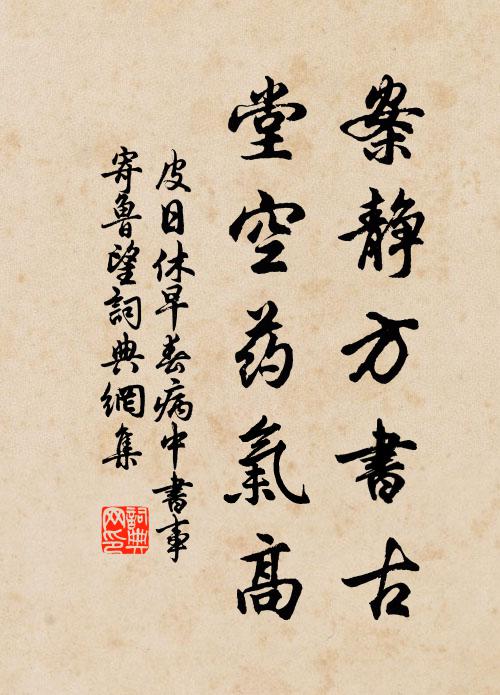 案静方書古
堂空药氣高
皮日休早春病中書事
寄魯望詞典網集
詞典网印